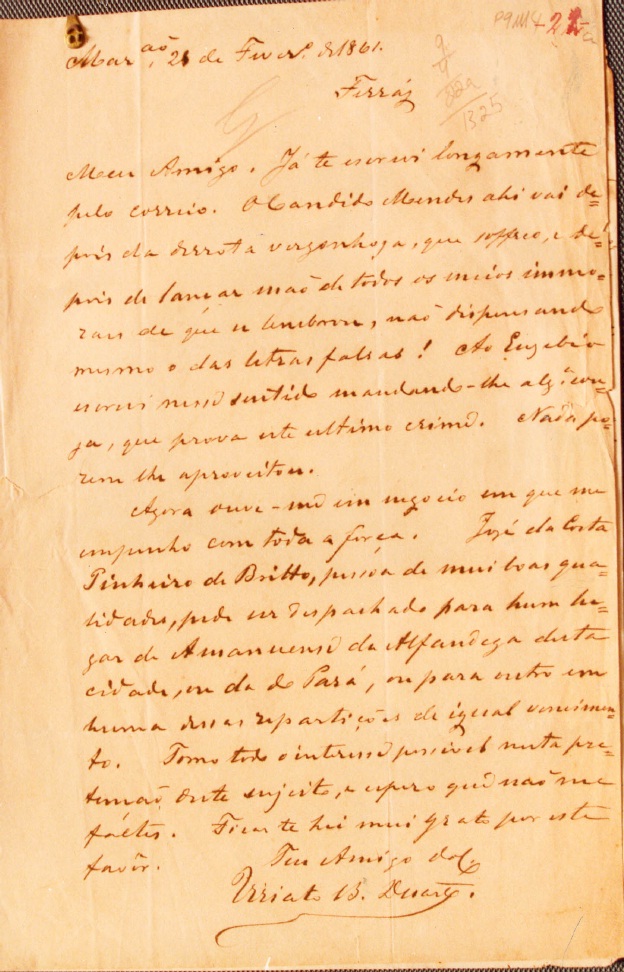 Mar.ão, 21 de Fever.º de 1861.
Ferráz
Meu Amigo. Já te escrevi longamente
pelo correio. O Candido Mendes ahi vai de=
pois da derrota vergonhoza, que soffreo, e de=
pois de lançar mão de todos os meios immo=
raes de que se lembrou, não dispensando
mesmo o das letras falsas! Ao Euzebio
escrevi nesse sentido mandando-lhe alg.ª cou-
za, que prova este ultimo crime. Nada po-
rem lhe aproveitou.
Agora ouve-me em negocio em que me
empenho com toda a força. José da Costa
Pinheiro de Britto, pessoa de mui boas qua-
lidades, pede ser despachado para hum lu-
gar de Amanuense da Alfandega desta
cidade, ou da do Pará, ou para outro em
huma dessas repartições de igual vencimen-
to. Tomo todo o interesse possivel nesta pre-
tenção deste sujeito, e espero que não me
faltes. Ficar te hei mui grato por este
favôr.
Teu Amigo
Viriato B. Duarte.
1325